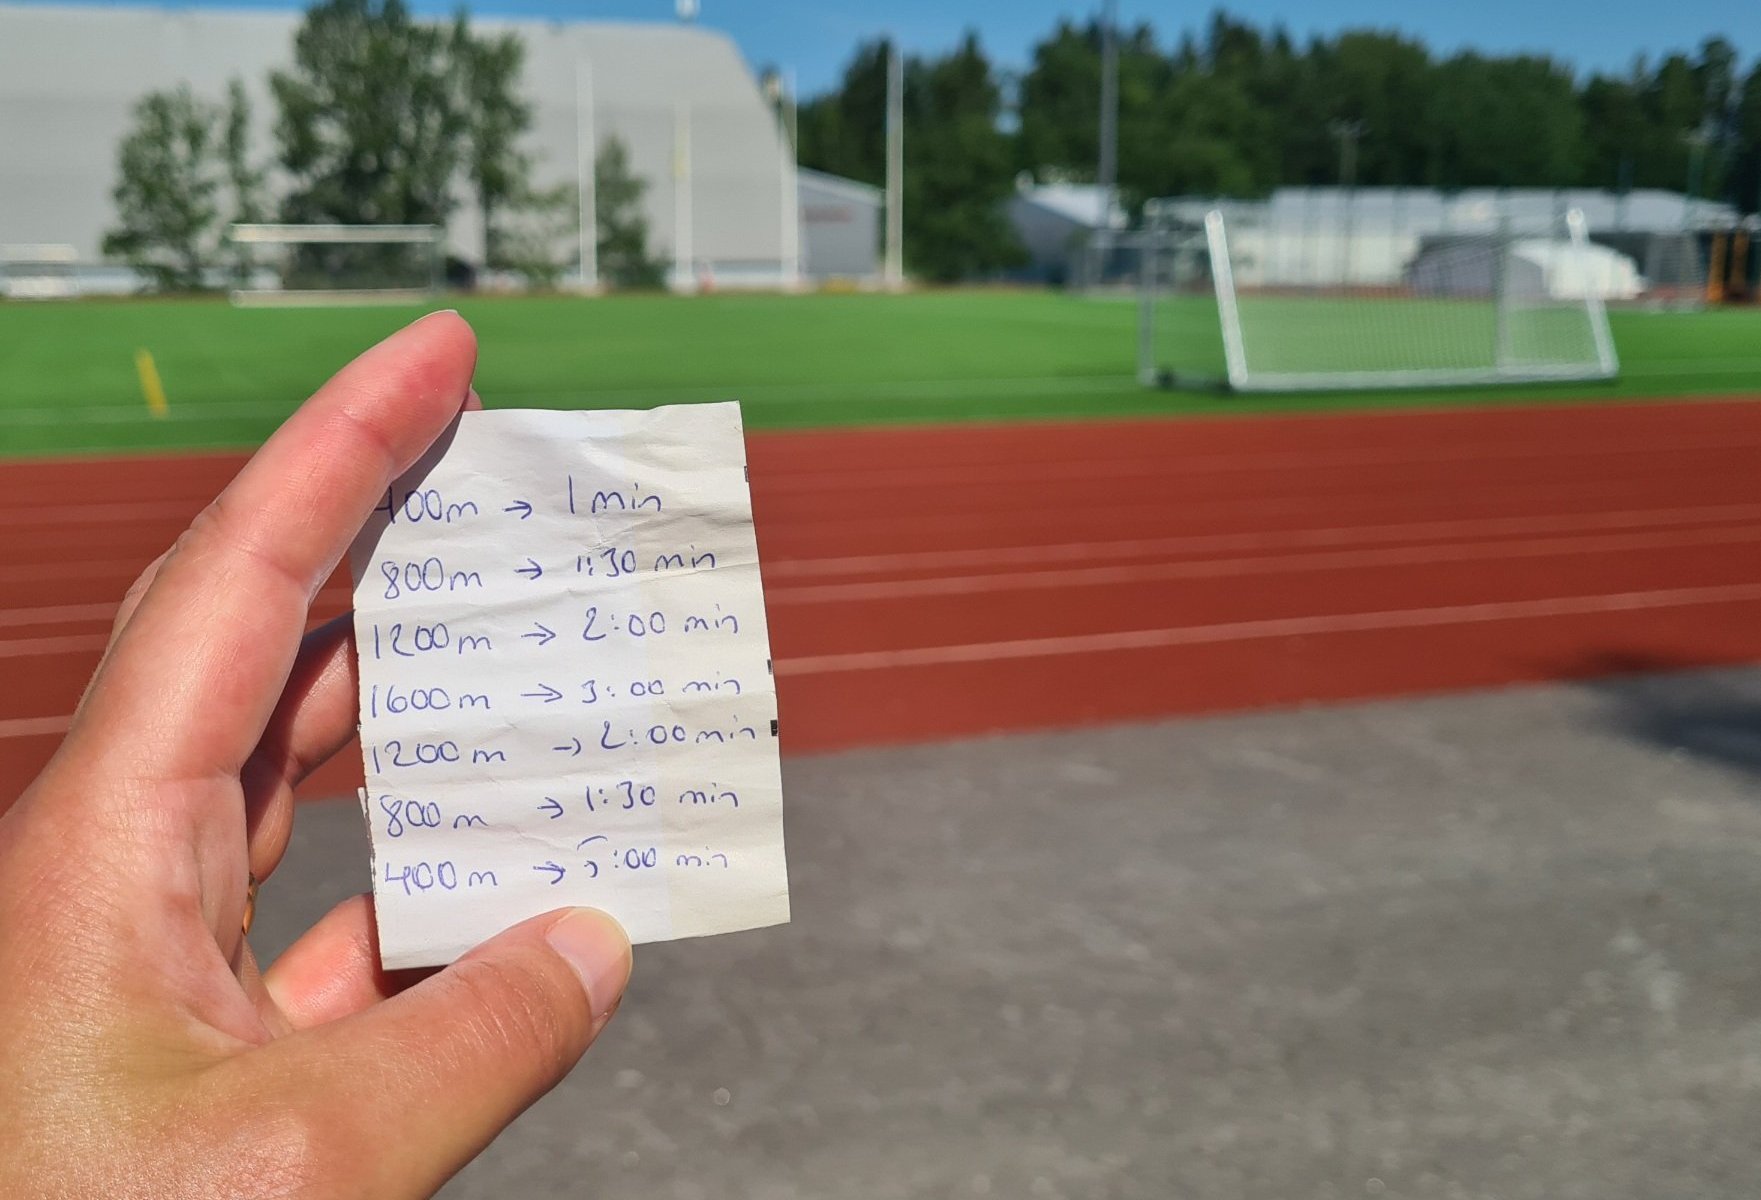 400m → 1 min
800m → 1:30 min
1200m → 2:00 min
1600m → 3:00 min
1200m → 2:00 min
800m → 1:30 min
400m → 5:00 min